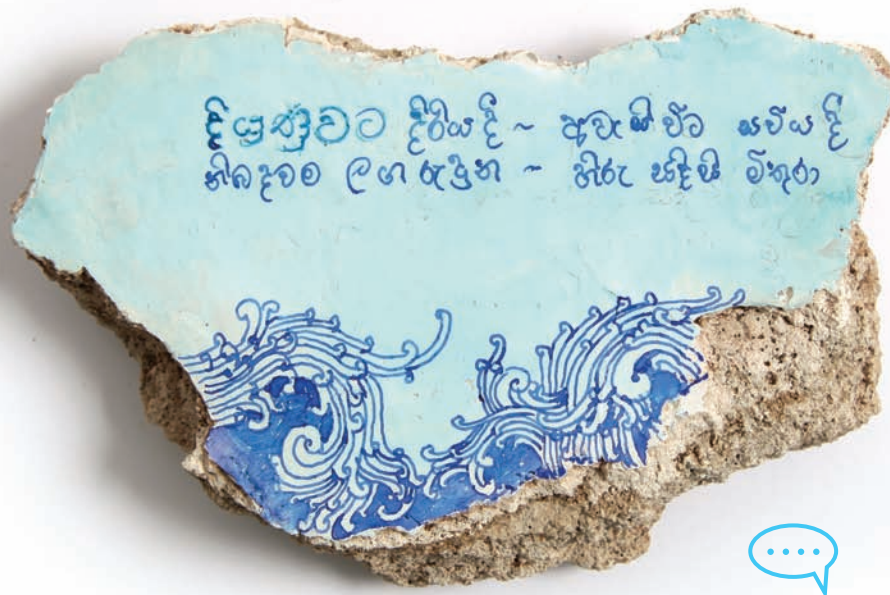 දියුණුවට දිරිය දී ~ අවැසි විට සවිය දී
නිබඳවම ලඟ රැඳුන ~ හිරු සඳිසි මිතුරා